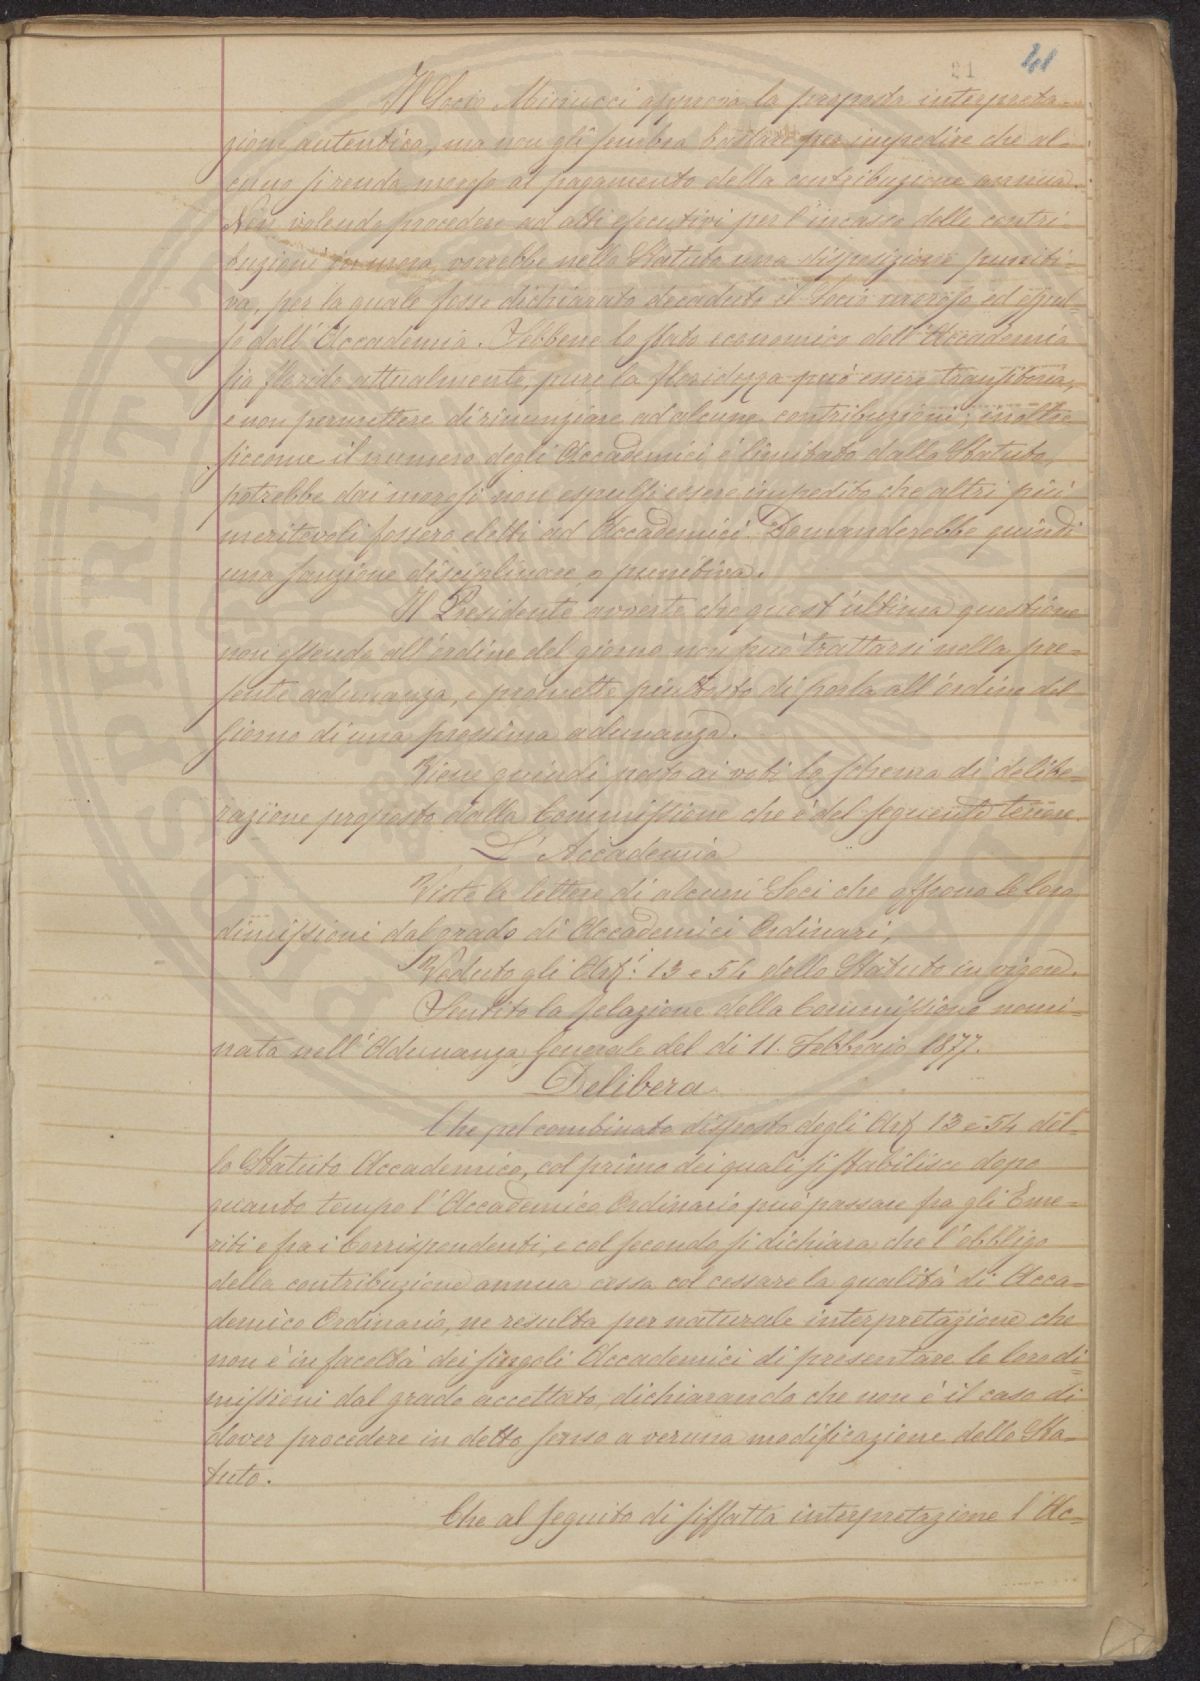 21 41
Il Socio Minucci approva la proposta interpreta-
zione autentica, ma non gli sembra bastare per impedire che al-
cuno si renda moroso al pagamento della contribuzione annua.
Non volendo procedere ad atti esecutivi per l'incasso delle contri-
buzioni in mora, vorrebbe nello Statuto una disposizione puniti-
va, per la quale fosse dichiarato decaduto il Socio moroso ed espul-
so dall'Accademia. Sebbene lo stato economico dell'Accademia
sia florido attualmente, pure la floridezza può essere transitoria,
e non permettere di rinunziare ad alcune contribuzioni; inoltre
siccome il numero degli Accademici è limitato dallo Statuto,
potrebbe dai morosi non espulsi essere impedito che altri più
meritevoli fossero eletti ad Accademici. Domanderebbe quindi
una sanzione disciplinare o punitiva.
Il Presidente avverte che quest'ultima questione
non essendo all'ordine del giorno non può trattarsi nella pre-
sente adunanza, e promette piuttosto di porla all'ordine del
giorno di una prossima adunanza.
Viene quindi posto ai voti lo schema di delibe-
razione proposto dalla Commissione che è del seguente tenore.
L'Accademia
Viste le lettere di alcuni Soci che offrono le loro
dimissioni dal grado di Accademici Ordinari,
Veduto gli Art.i 13 e 54 dello Statuto in vigore.
Sentito la relazione della Commissione nomi-
nata nell'Adunanza generale del dì 11. Febbraio 1877.
Delibera.
Che pel combinato disposto degli Art. 13 e 54 del-
lo Statuto Accademico, col primo dei quali si stabilisce dopo
quanto tempo l'Accademico Ordinario può passare fra gli Eme-
riti e fra i Corrispondenti, e col secondo si dichiara che l'obbligo
della contribuzione annua cessa col cessare la qualità di Acca-
demico Ordinario, ne resulta per naturale interpretazione che
non è in facoltà dei singoli Accademici di presentare le loro di-
missioni dal grado accettato, dichiarando che non è il caso di
dover procedere in detto senso a veruna modificazione dello Sta-
tuto.
Che al seguito di siffatta interpretazione l'Ac-